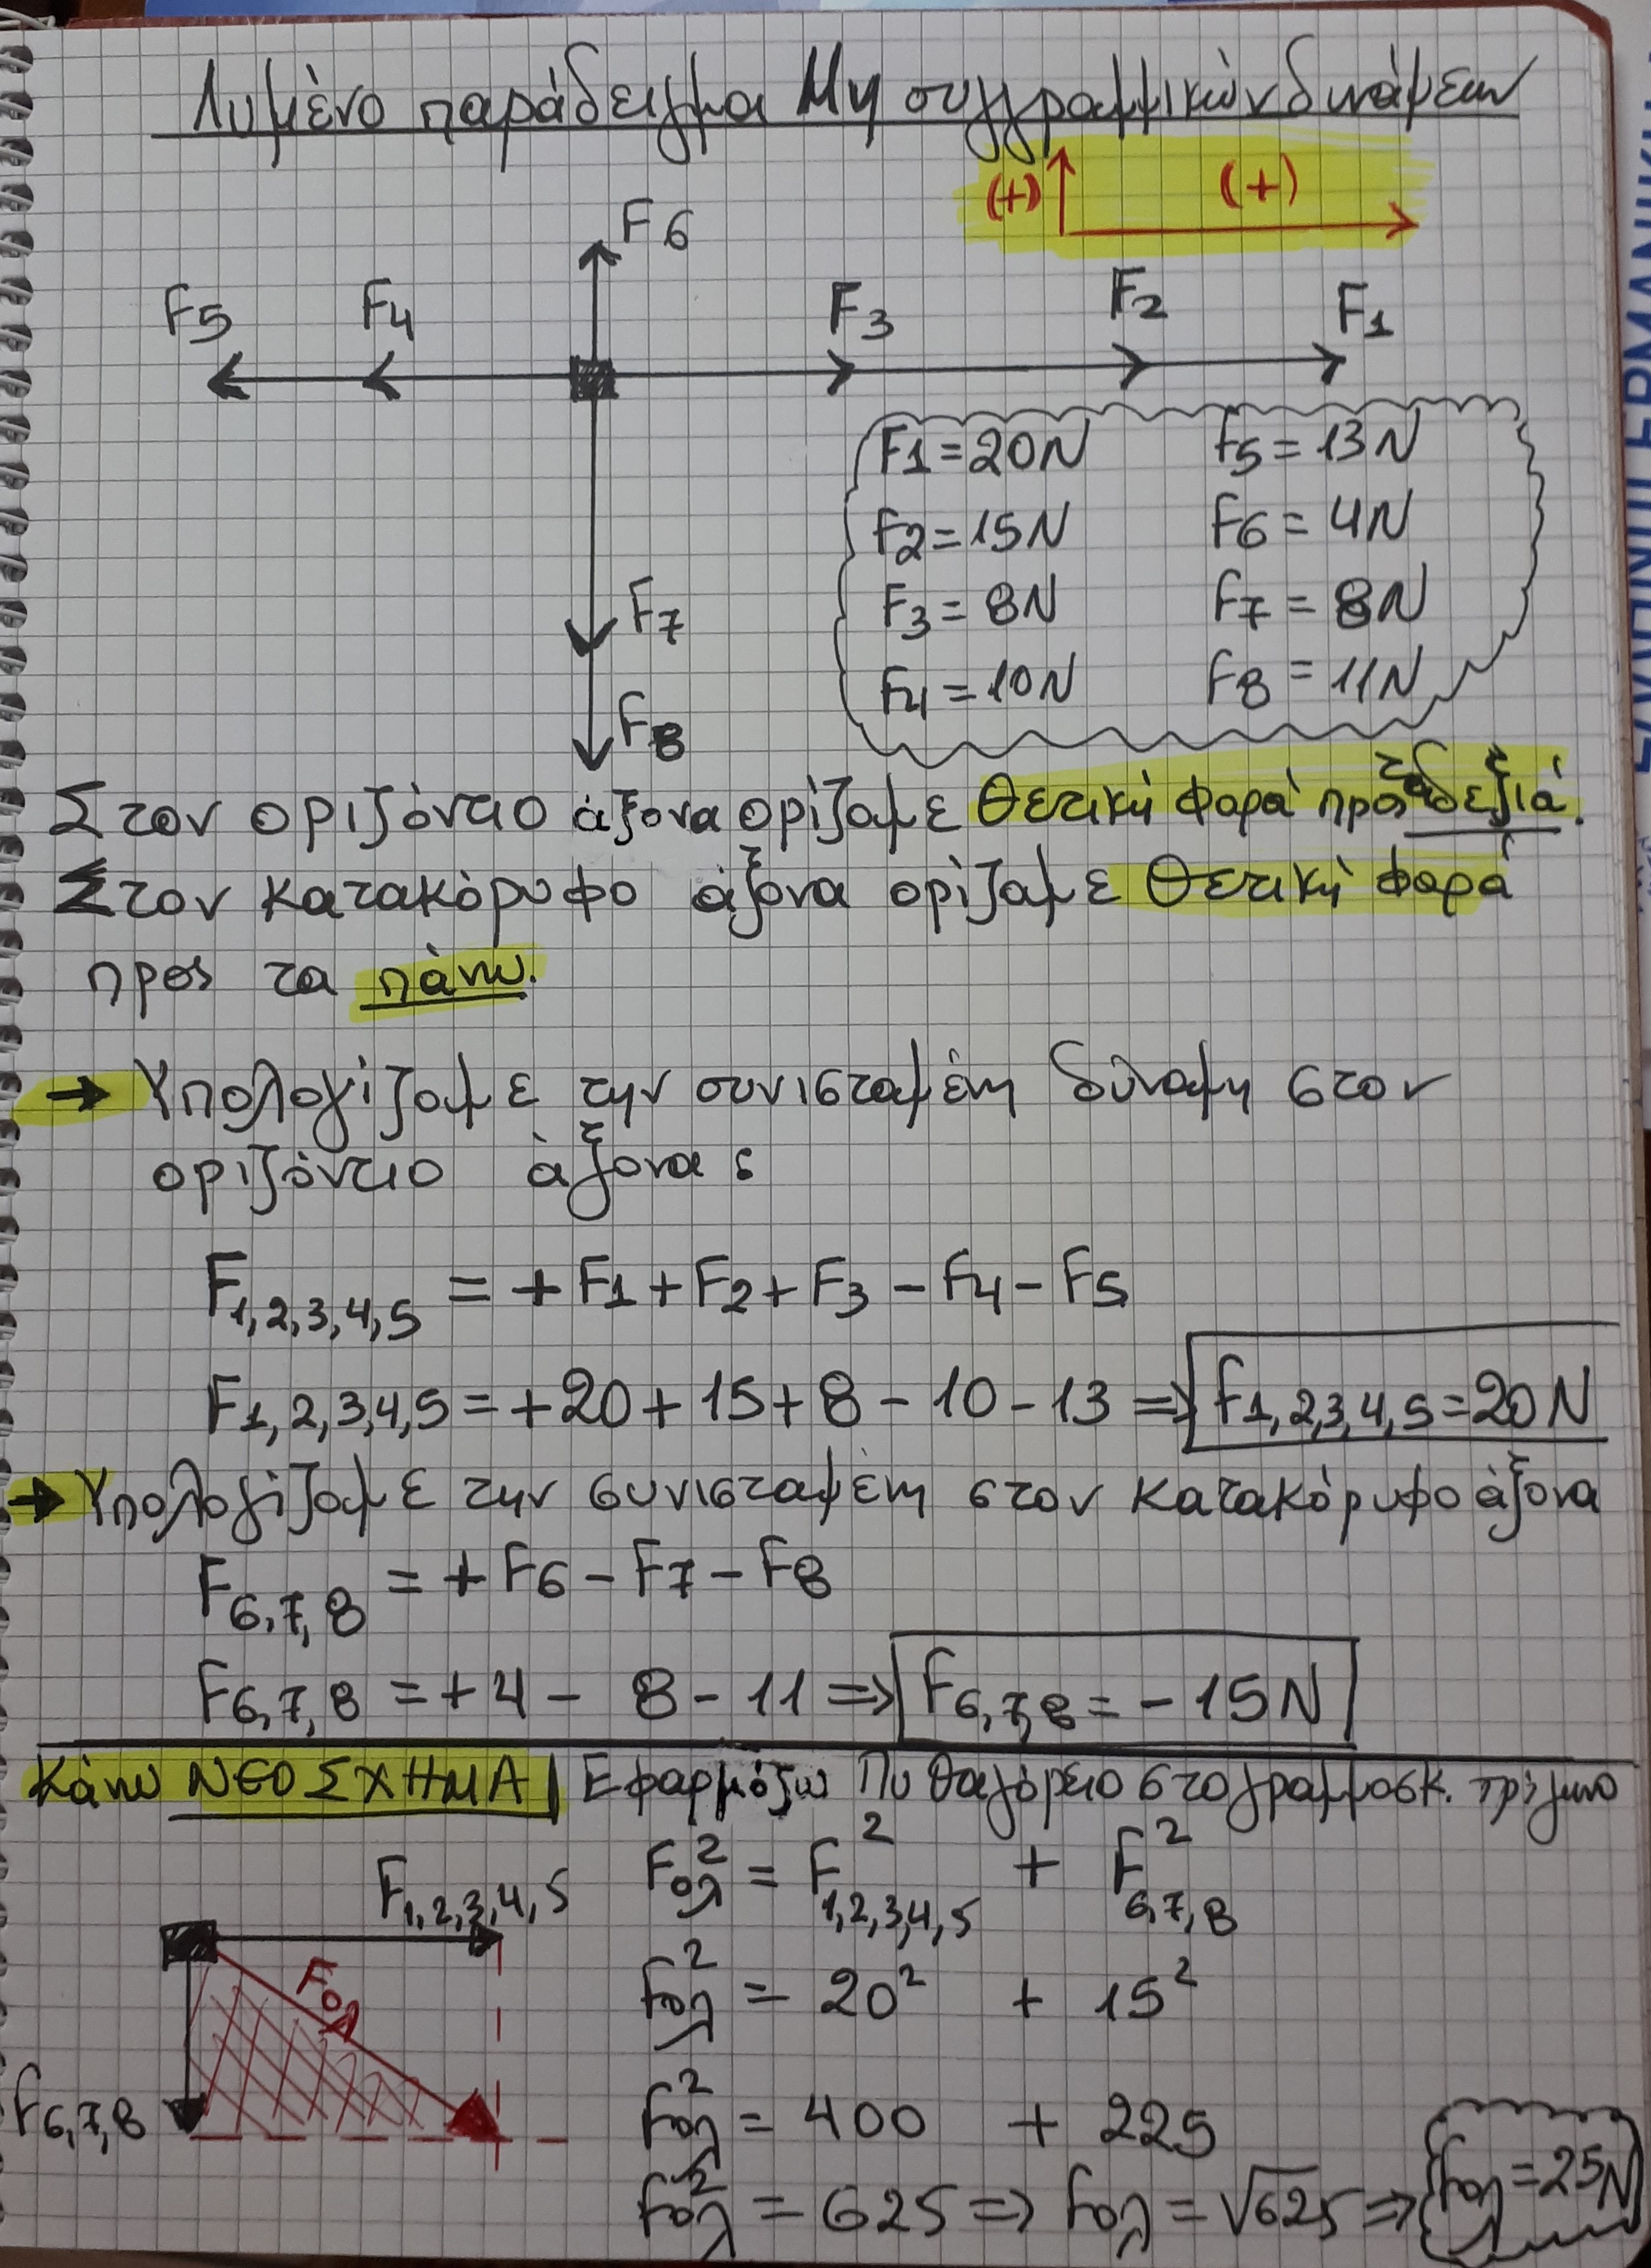 Λυμένο παράδειγμα Μη συγγραμμικών δυνάμεων
(+) (+)
F6
F5 F4 F3 F2 F1
F1=20N F5=13N
F2=15N F6=4N
F3=8N F7=8N
F4=10N F8=11N
F7
F8
Στον οριζόντιο άξονα ορίζουμε θετική φορά προς τα δεξιά.
Στον κατακόρυφο άξονα ορίζουμε θετική φορά
προς τα πάνω.
→ Υπολογίζουμε την συνισταμένη δύναμη στον
οριζόντιο άξονα:
F1,2,3,4,5 = +F1+F2+F3-F4-F5
F1,2,3,4,5=+20+15+8-10-13 => F1,2,3,4,5=20N
→ Υπολογίζουμε την συνισταμένη στον κατακόρυφο άξονα
F6,7,8 = +F6-F7-F8
F6,7,8 = +4- 8-11 => F6,7,8=-15N
Κάνω ΝΕΟ ΣΧΗΜΑ Εφαρμόζω Πυθαγόρειο στο γραμμοσκ. τρίγωνο
F1,2,3,4,5
Fολ
F6,7,8
Fολ² = F1,2,3,4,5² + F6,7,8²
Fολ² = 20² + 15²
Fολ² = 400 + 225
Fολ² = 625 => Fολ = √625 => Fολ=25N